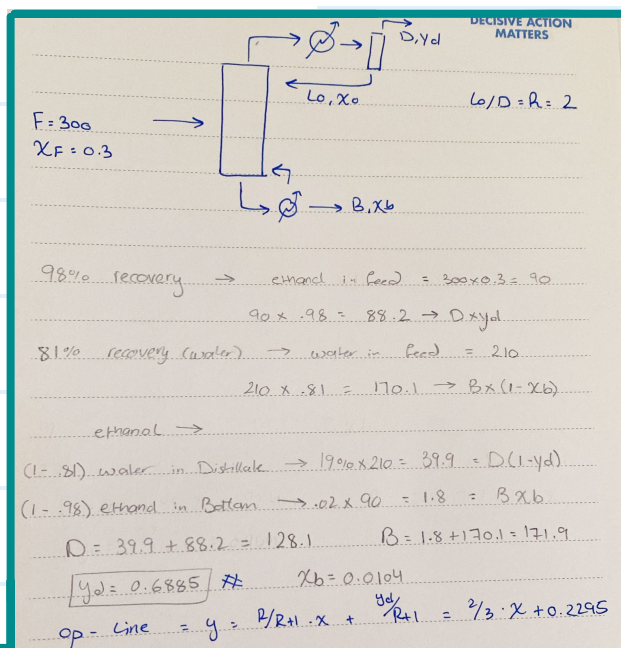 DECISIVE ACTION
MATTERS
D, yd
Lo, xo
Lo/D = R = 2
F = 300
XF = 0.3
B, xb
98% recovery → ethanol in feed = 300x0.3 = 90
90 x .98 = 88.2 → Dxyd
81% recovery (water) → water in feed = 210
210 x .81 = 170.1 → Bx(1-xb)
ethanol →
(1-.81) water in Distillate → 19% x 210 = 39.9 = D(1-yd)
(1-.98) ethanol in Bottom → .02 x 90 = 1.8 = Bxb
D = 39.9 + 88.2 = 128.1 B = 1.8 + 170.1 = 171.9
yd = 0.6885 # xb = 0.0104
op-Line = y = R/R+1 . x + yd/R+1 = 2/3 . x + 0.2295